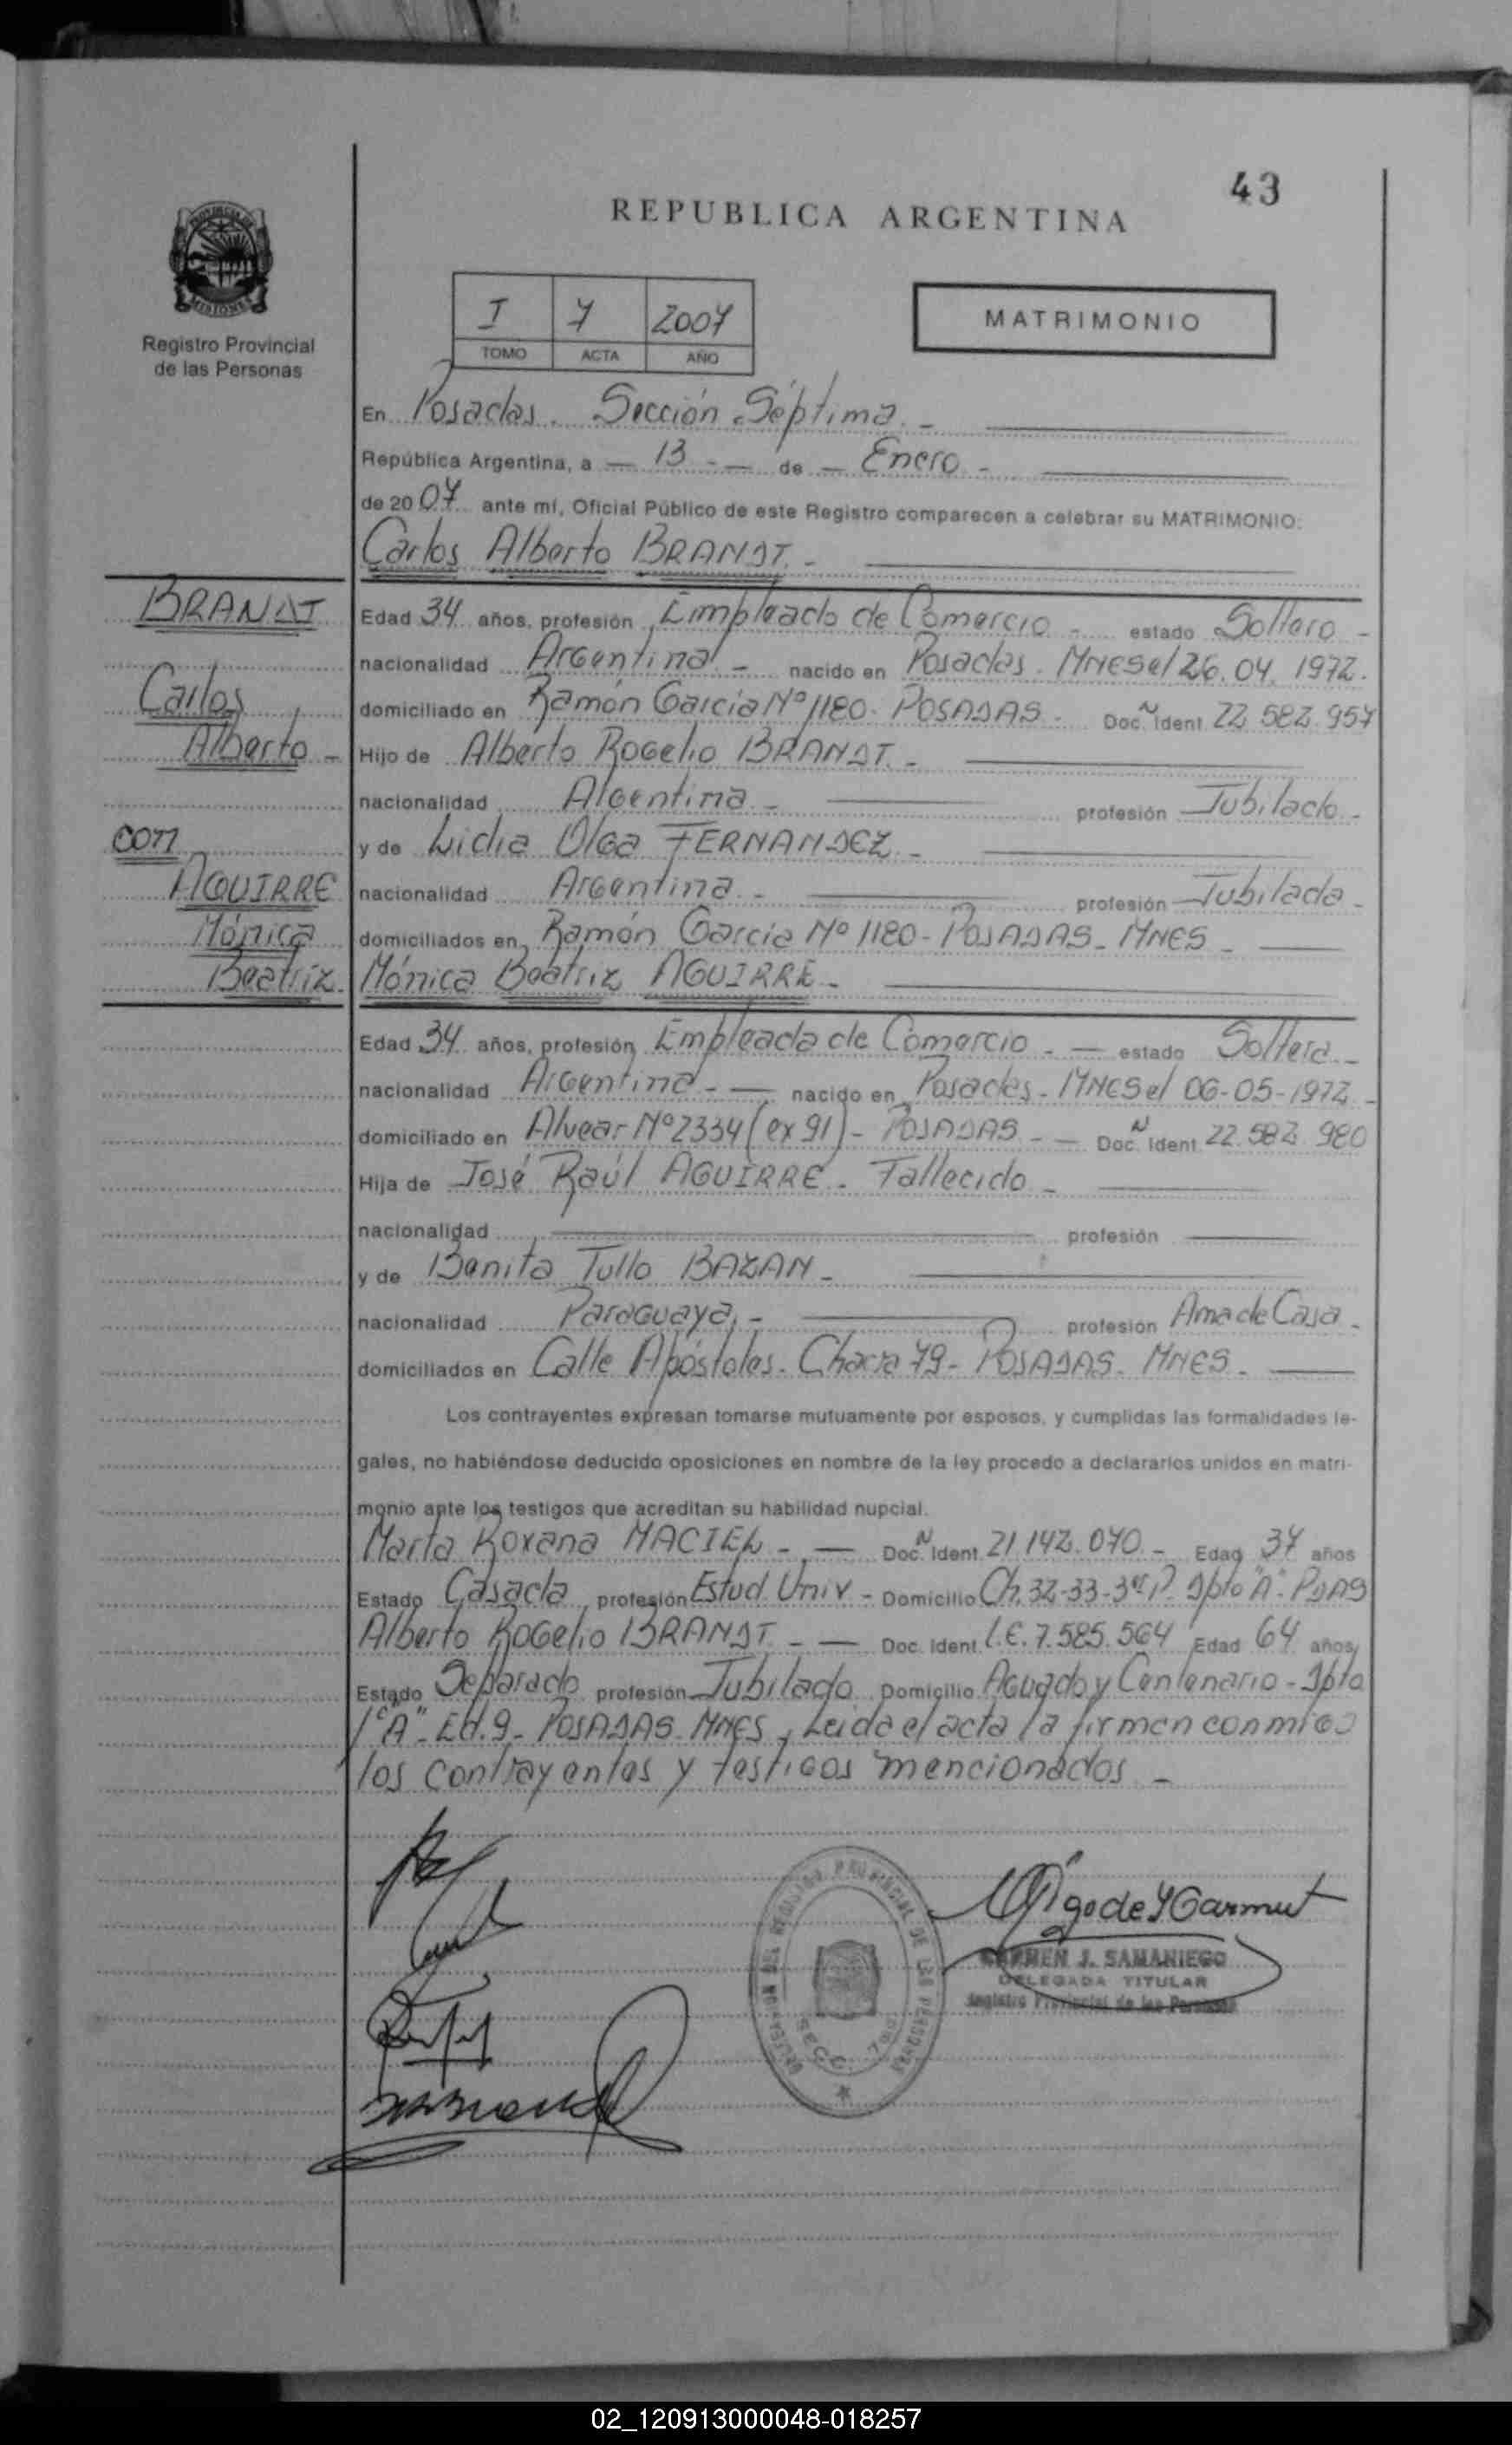 43
REPUBLICA ARGENTINA
PROVINCIA DE
MISIONES
Registro Provincial
de las Personas
I 7 2007
TOMO ACTA AÑO
MATRIMONIO
En Posadas. Sección Séptima. -
República Argentina, a - 13 - - de - Enero -
de 2007 ante mí, Oficial Público de este Registro comparecen a celebrar su MATRIMONIO:
Carlos Alberto BRANDT. -
BRANDT
Carlos
Alberto -
con
AGUIRRE
Mónica
Beatriz.
Edad 34 años, profesión Empleado de Comercio - estado Soltero -
nacionalidad Argentina - nacido en Posadas. MNES el 26.04.1972.
domiciliado en Ramón García Nº 1180 - POSADAS - Doc. N Ident. 22.582.957
Hijo de Alberto Rogelio BRANDT. -
nacionalidad Argentina - profesión Jubilado -
y de Lidia Olga FERNANDEZ -
nacionalidad Argentina - profesión Jubilada -
domiciliados en Ramón García Nº 1180 - POSADAS - MNES -
Mónica Beatriz AGUIRRE -
Edad 34 años, profesión Empleada de Comercio - - estado Soltera -
nacionalidad Argentina - - nacido en Posadas - MNES el 06-05-1972 -
domiciliado en Alvear Nº 2334 (ex 91) - POSADAS - - Doc. N Ident. 22.582.980
Hija de José Raúl AGUIRRE - Fallecido -
nacionalidad profesión
y de Benita Tullo BAZAN -
nacionalidad Paraguaya - profesión Ama de Casa -
domiciliados en Calle Apóstoles - Chacra 79 - POSADAS - MNES -
Los contrayentes expresan tomarse mutuamente por esposos, y cumplidas las formalidades le-
gales, no habiéndose deducido oposiciones en nombre de la ley procedo a declararlos unidos en matri-
monio ante los testigos que acreditan su habilidad nupcial.
Marta Roxana MACIEL - - Doc. N Ident. 21.142.070 - Edad 37 años
Estado Casada profesión Estud. Univ - Domicilio Ch. 32-33-3er P. Dpto "A" PDAS
Alberto Rogelio BRANDT - - Doc. Ident. L.E. 7.585.564 Edad 64 años,
Estado Separado profesión Jubilado Domicilio Aguado y Centenario - Dpto
1º "A" - Ed. 9 - POSADAS - MNES, Leída el acta la firman conmigo
los contrayentes y testigos mencionados -
CARMEN J. SAMANIEGO
DELEGADA TITULAR
Registro Provincial de las Personas
02_120913000048-018257